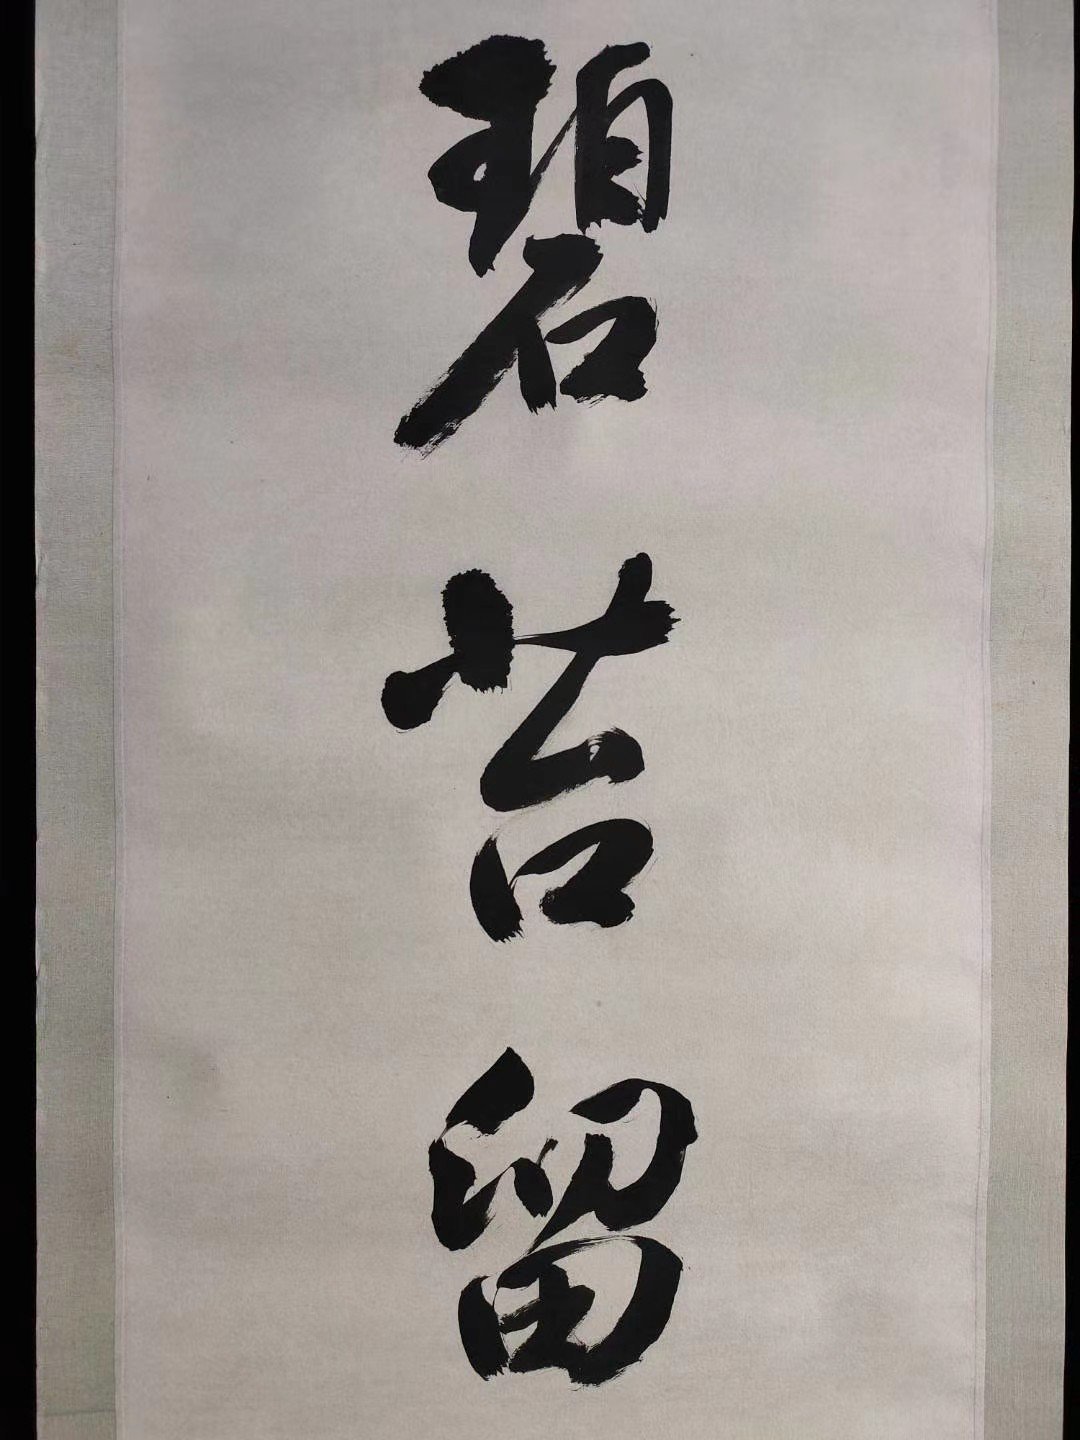 碧苔留